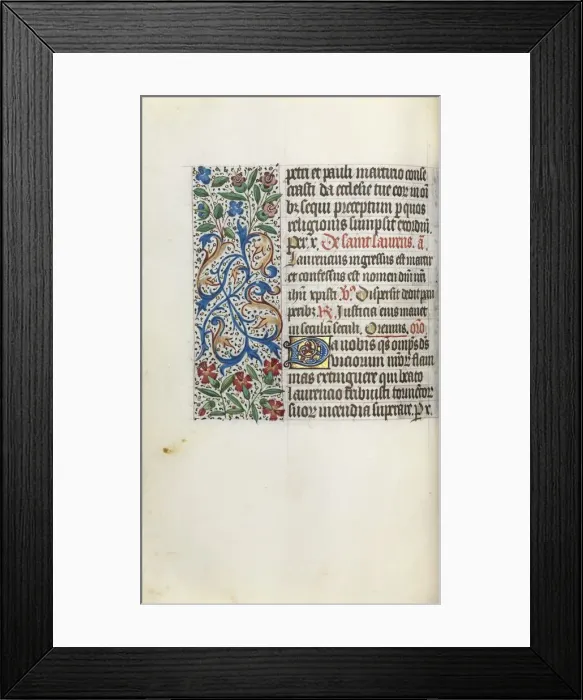 petri et pauli martirio conse
crasti da ecclesie tue eor in oī
bꝫ sequi preceptum p quos
religionis sumpsit exordiū.
Per. x. De saint laurens. ā.
Laurencius ingressus est martir
et confessus est nomen dnī nrī
ihū xpisti. Vꝰ. Dispersit dedit pau
peribꝫ. R. Iusticia eius manet
in seculū seculi. Oremus. orō
Da nobis qs omps ds
viciorum nrōr flam
mas extinguere qui beato
laurencio tribuisti tormētor
suor incendia superare. P x.